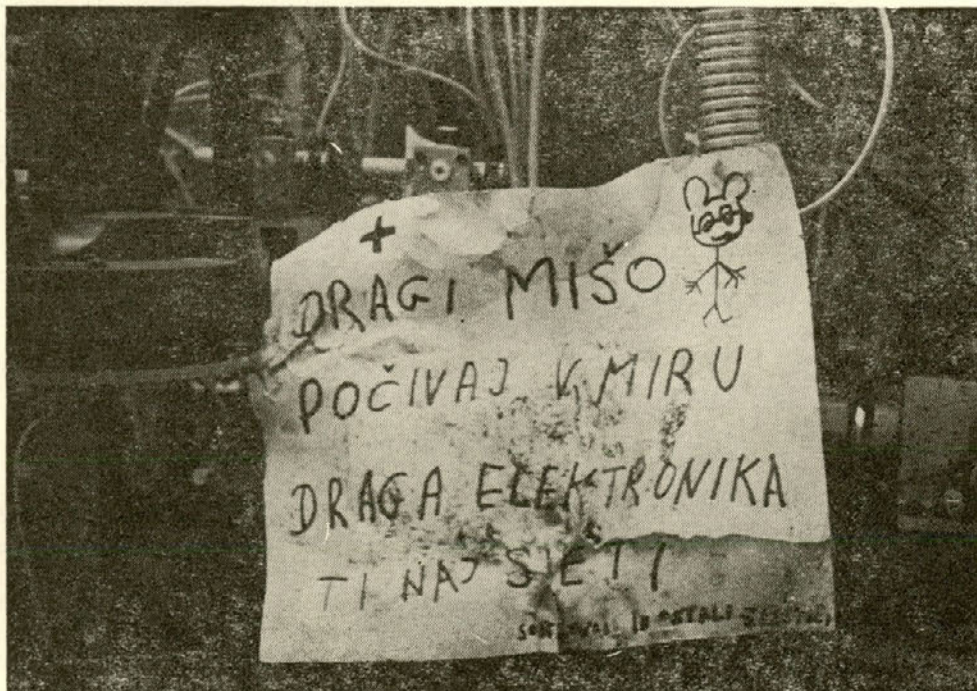 +
DRAGI MIŠO
POČIVAJ V MIRU
DRAGA ELEKTRONIKA
TI NAJ SVETI
IN OSTALI